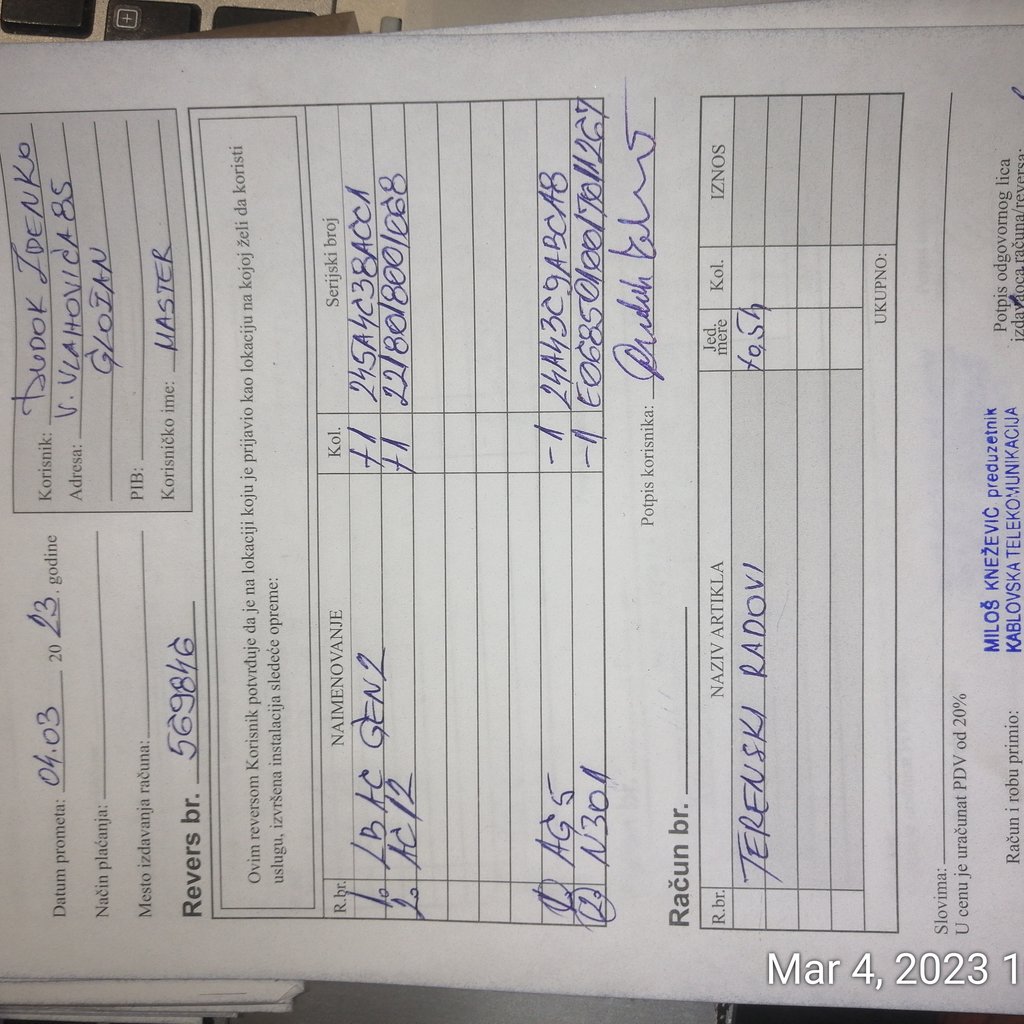 Datum prometa: 04.03 2023. godine
Način plaćanja:
Mesto izdavanja računa:
Korisnik: DUDOK ZDENKO
Adresa: V. VLAHOVIĆA 85
GLOŽAN
PIB:
Korisničko ime: MASTER
Revers br. 569846
Ovim reversom Korisnik potvrđuje da je na lokaciji koju je prijavio kao lokaciju na kojoj želi da koristi
uslugu, izvršena instalacija sledeće opreme:
R.br. NAIMENOVANJE Kol. Serijski broj
1. LBAC GEN2 +1 245A4C38ACC1
2. AC12 +1 2218018001068
1. AG5 -1 24A43C9ABCAB
2. N301 -1 E0685010017011267
Potpis korisnika:
Račun br.
R.br. NAZIV ARTIKLA Jed. mere Kol. IZNOS
TERENSKI RADOVI
UKUPNO:
Slovima:
U cenu je uračunat PDV od 20%
Račun i robu primio:
MILOŠ KNEŽEVIĆ preduzetnik
KABLOVSKA TELEKOMUNIKACIJA
Potpis odgovornog lica
izdavaoca računa/reversa:
Mar 4, 2023 1